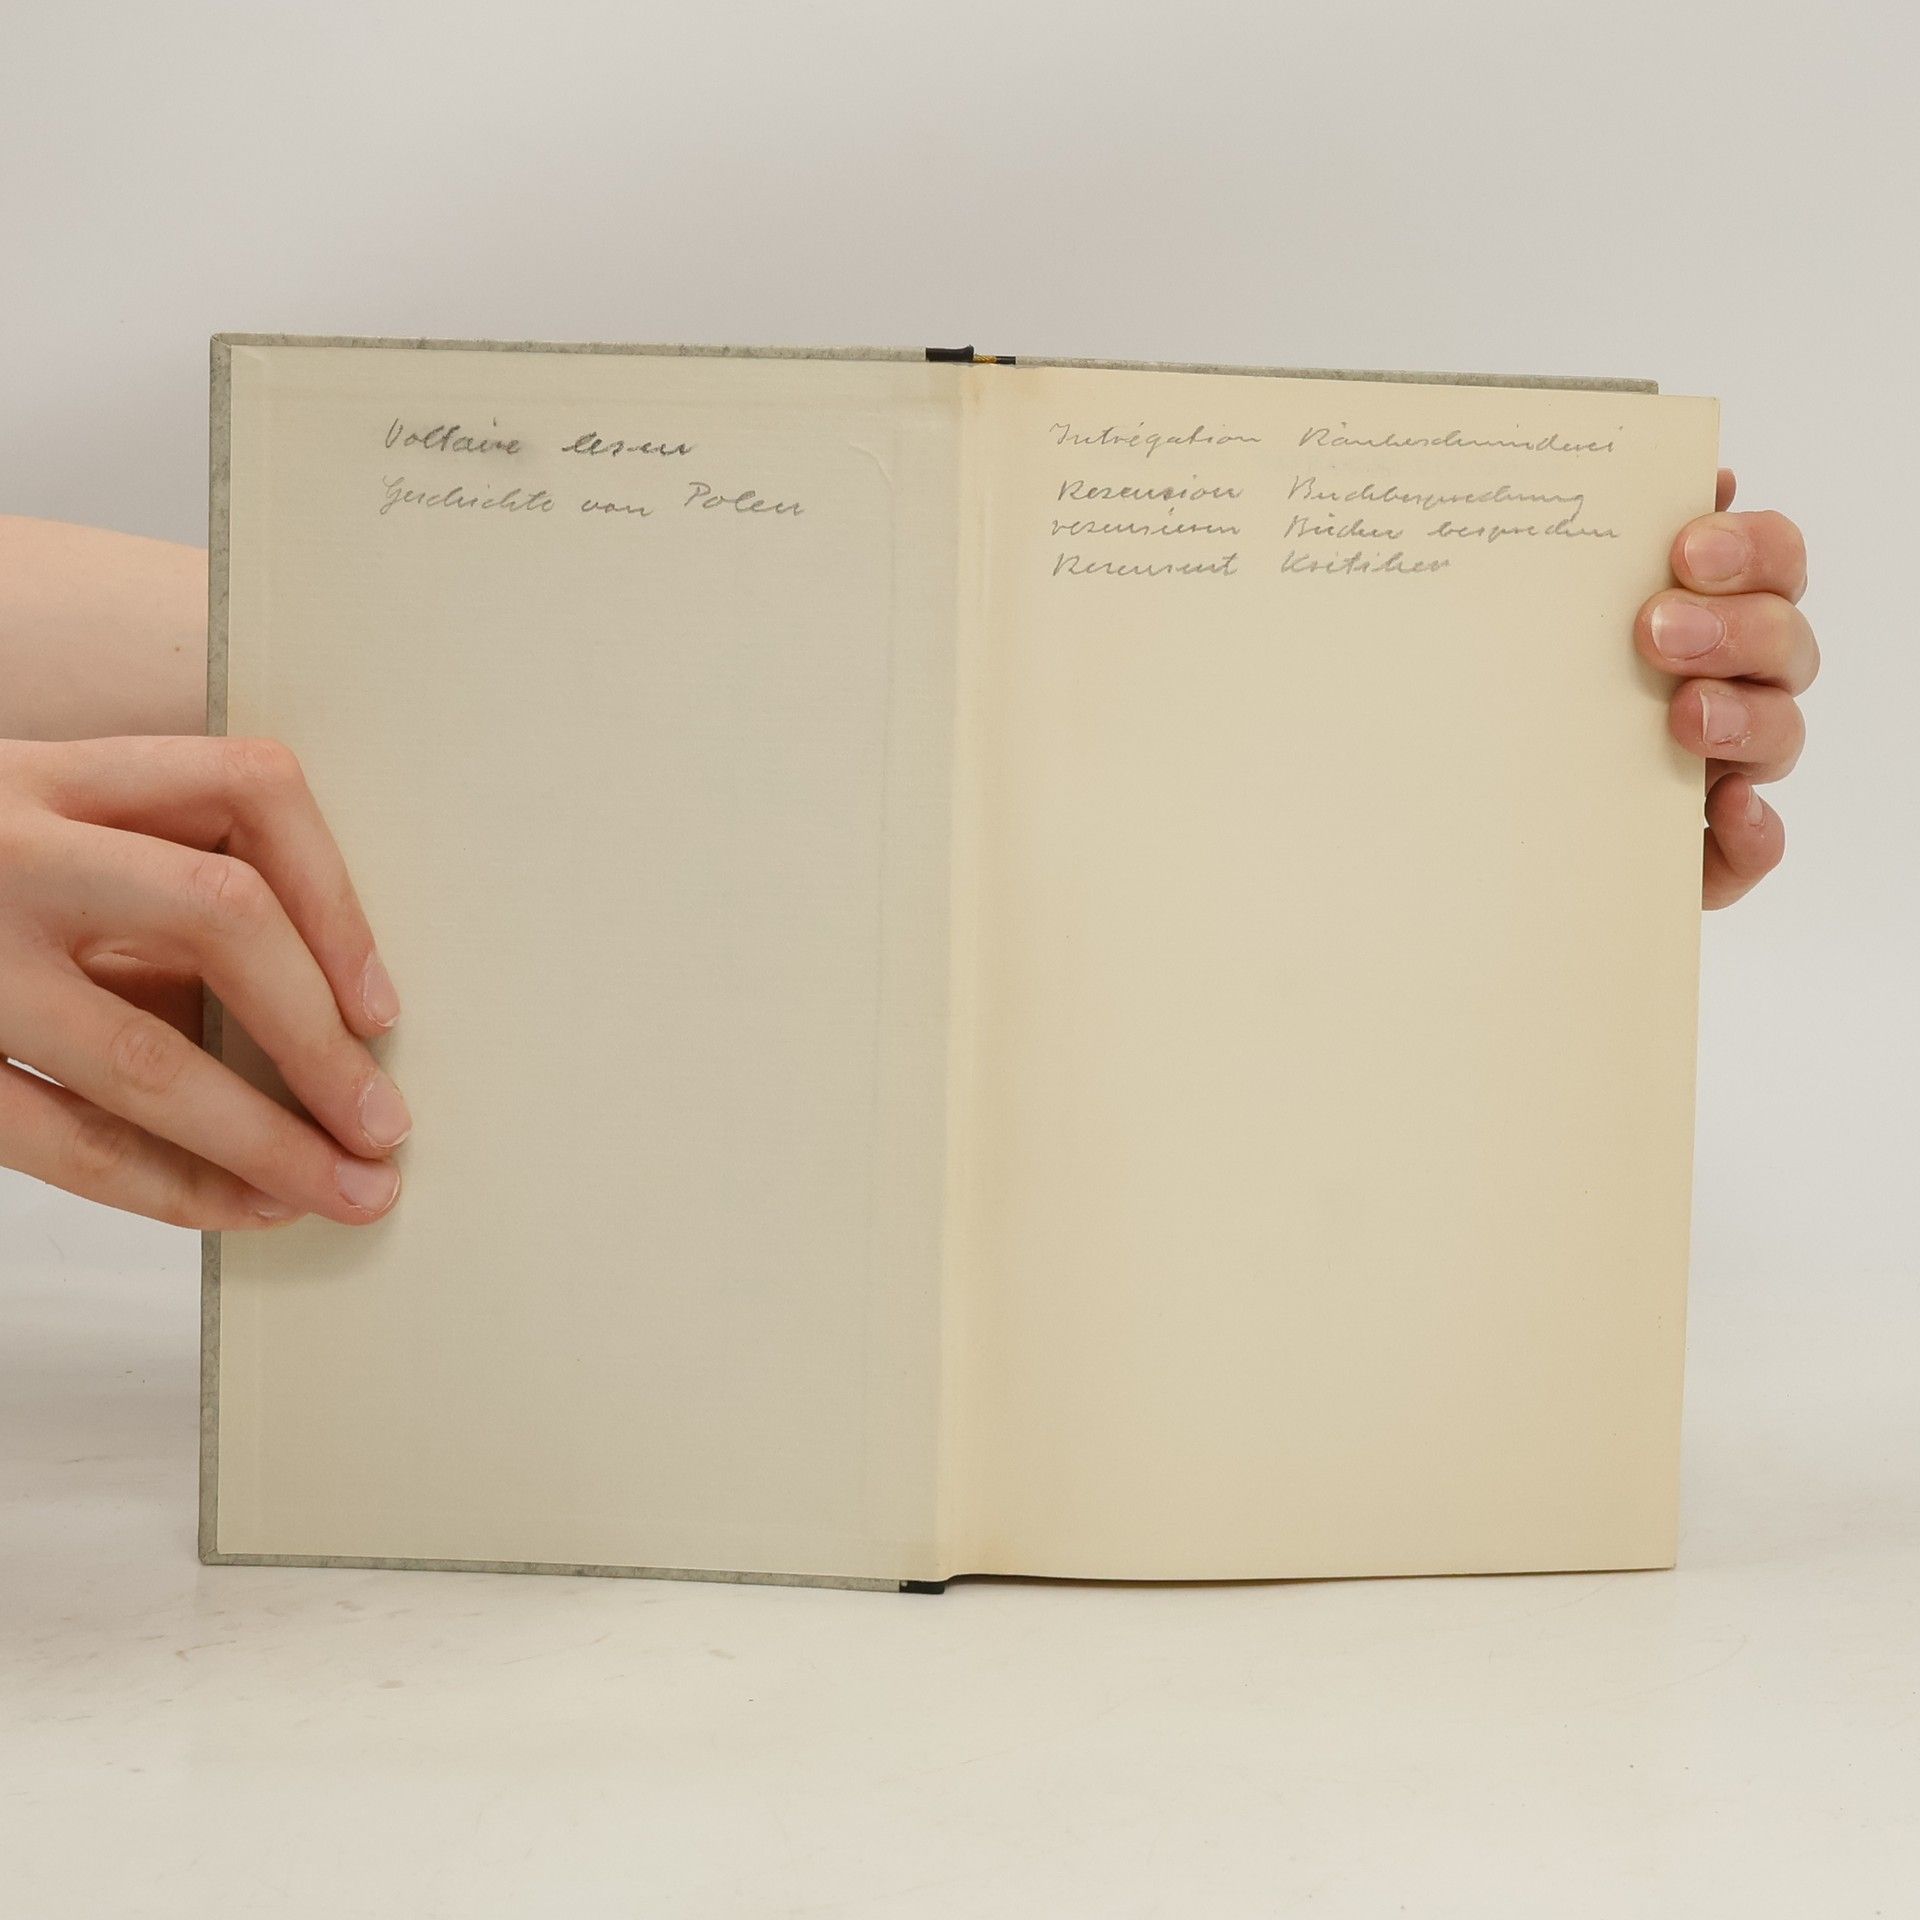 Voltaire lesen
Geschichte von Polen
Intrigation
Rezension Buchbesprechung
rezensieren Bücher besprechen
Rezensent Kritiker